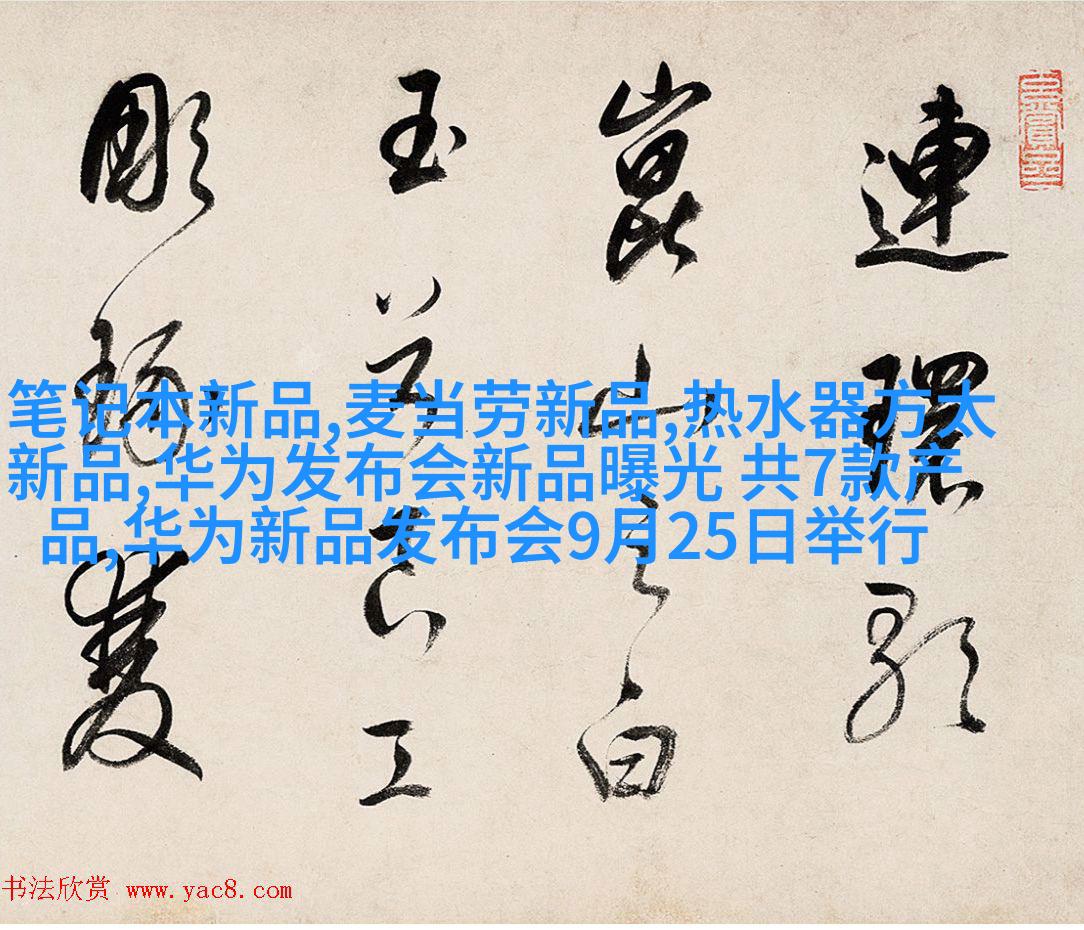 連環歌
崑山之白
玉兮良工
彫琢雙
笔记本新品,麦当劳新品,热水器方太
新品,华为发布会新品曝光 共7款产
品,华为新品发布会9月25日举行
书法欣赏 www.yac8.com